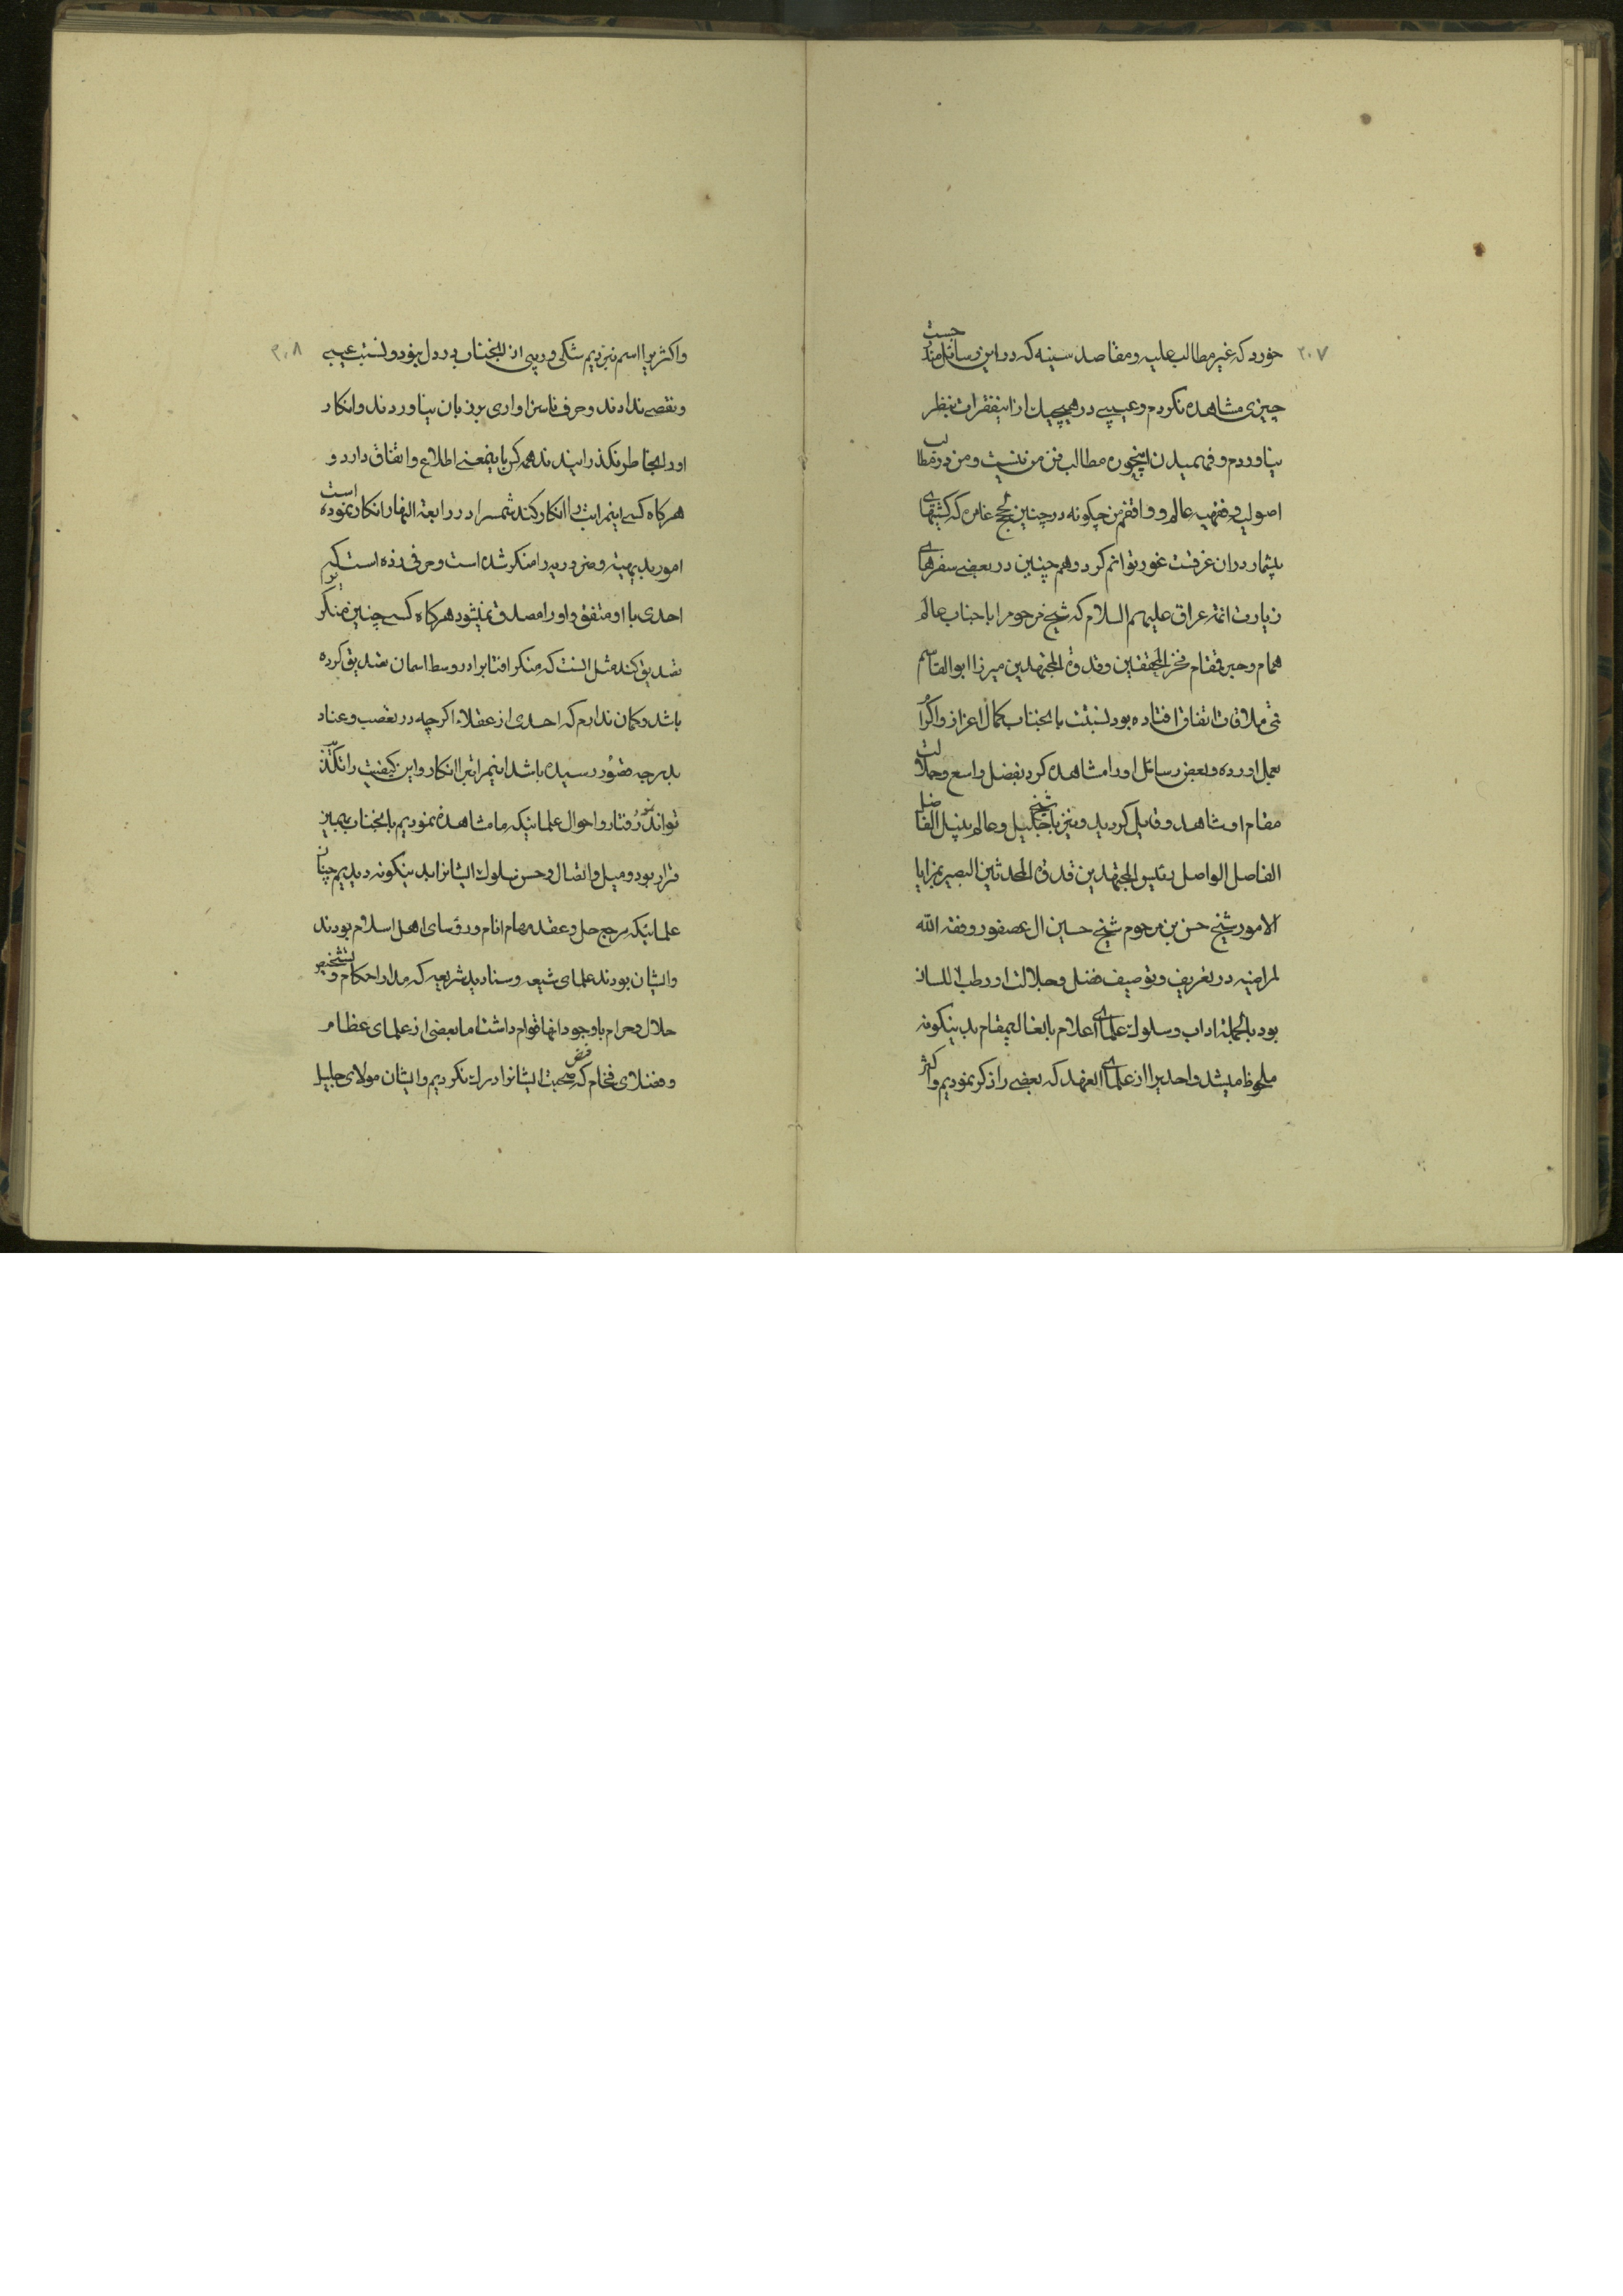 ۲۰۷
خورد که غیر مطالب علیه و مقاصد سنیه که در این رسائل مندرجست
چیزی مشاهده نکردم و عیبی در هیچیک از اینفقرات بنظر
نیاوردم و فهمیدن اینچون مطالب فن من نیست و من در مطالب
اصولیه و فقهیه عالم و واقفم من چگونه در چنین لجج غامره که کشتیهای
بیشمار در ان غرقست غور توانم کرد و هم چنین در بعضی سفرهای
زیارت ائمه عراق علیهم السلام که شیخ مرحوم را با جناب عالم
همام و حبر قمقام فخر المحققین و قدوة المجتهدین میرزا ابوالقاسم
قمی ملاقات اتفاق افتاده بود نسبت بانجناب کمال اعزاز و اکرام
بعمل اورده و بعض رسائل او را مشاهده کرد بفضل واسع و جلالت
مقام او شاهد و قایل گردید و نیز با شیخ جلیل و عالم نبیل الفاضل
الفاصل الواصل رئیس المجتهدین قدوة المحدثین البصیر بمزایا
الامور شیخ حسن بن مرحوم شیخ حسین ال عصفور وفقه الله
لمراضیه در تعریف و توصیف فضل و جلالت او رطب اللسان
بود بالجمله اداب و سلوک علمای اعلام با بعالیمقام بدینگونه
ملحوظ میشد و احدیرا از علمای العهد که بعضی را ذکر نمودیم و اکثر
۲۰۸
و اکثر یرا اسم نبردیم شکی و ریبی از انجناب در دل نبود و نسبت عیبی
و نقصی ندادند و حرف ناسزاواری بر زبان نیاوردند و انکار
او را بخاطر نگذرانیدند همه کس باینمعنی اطلاع و اتفاق دارد و
هرگاه کسی اینمراتب را انکار کند شمس را در رابعة النهار انکار نموده است
امور بدیهیه و ضروریه را منکر شده است و حرفی زده است که
احدی با او متفق و او را مصدق نمیشود هرگاه کسی چنین منکریرا
تصدیق کند مثل انست که منکر افتابرا در وسط اسمان تصدیق کرده
باشد و گمان ندارم که احدی از عقلاء اگر چه در تعصب و عناد
بدرجه قصور رسیده باشد اینمراتبرا انکار و این کیفیت را تکذیب
تواند نمود رفتار و احوال علمائیکه ما مشاهده نمودیم بانجناب بهمین
قرار بود و میل و اتصال و حسن سلوک ایشانرا بدینگونه دیدیم چنان
علمائیکه مرجع حل و عقد مهام انام و رؤسای اهل اسلام بودند
و ایشان بودند علمای شیعه و سنادید شریعه که مدار احکام و تشخیص
حلال و حرام با وجود انها قوام داشت اما بعضی از علمای عظام
و فضلای فخام که فیض صحبت ایشانرا درک نکردیم و ایشان مولای جلیل